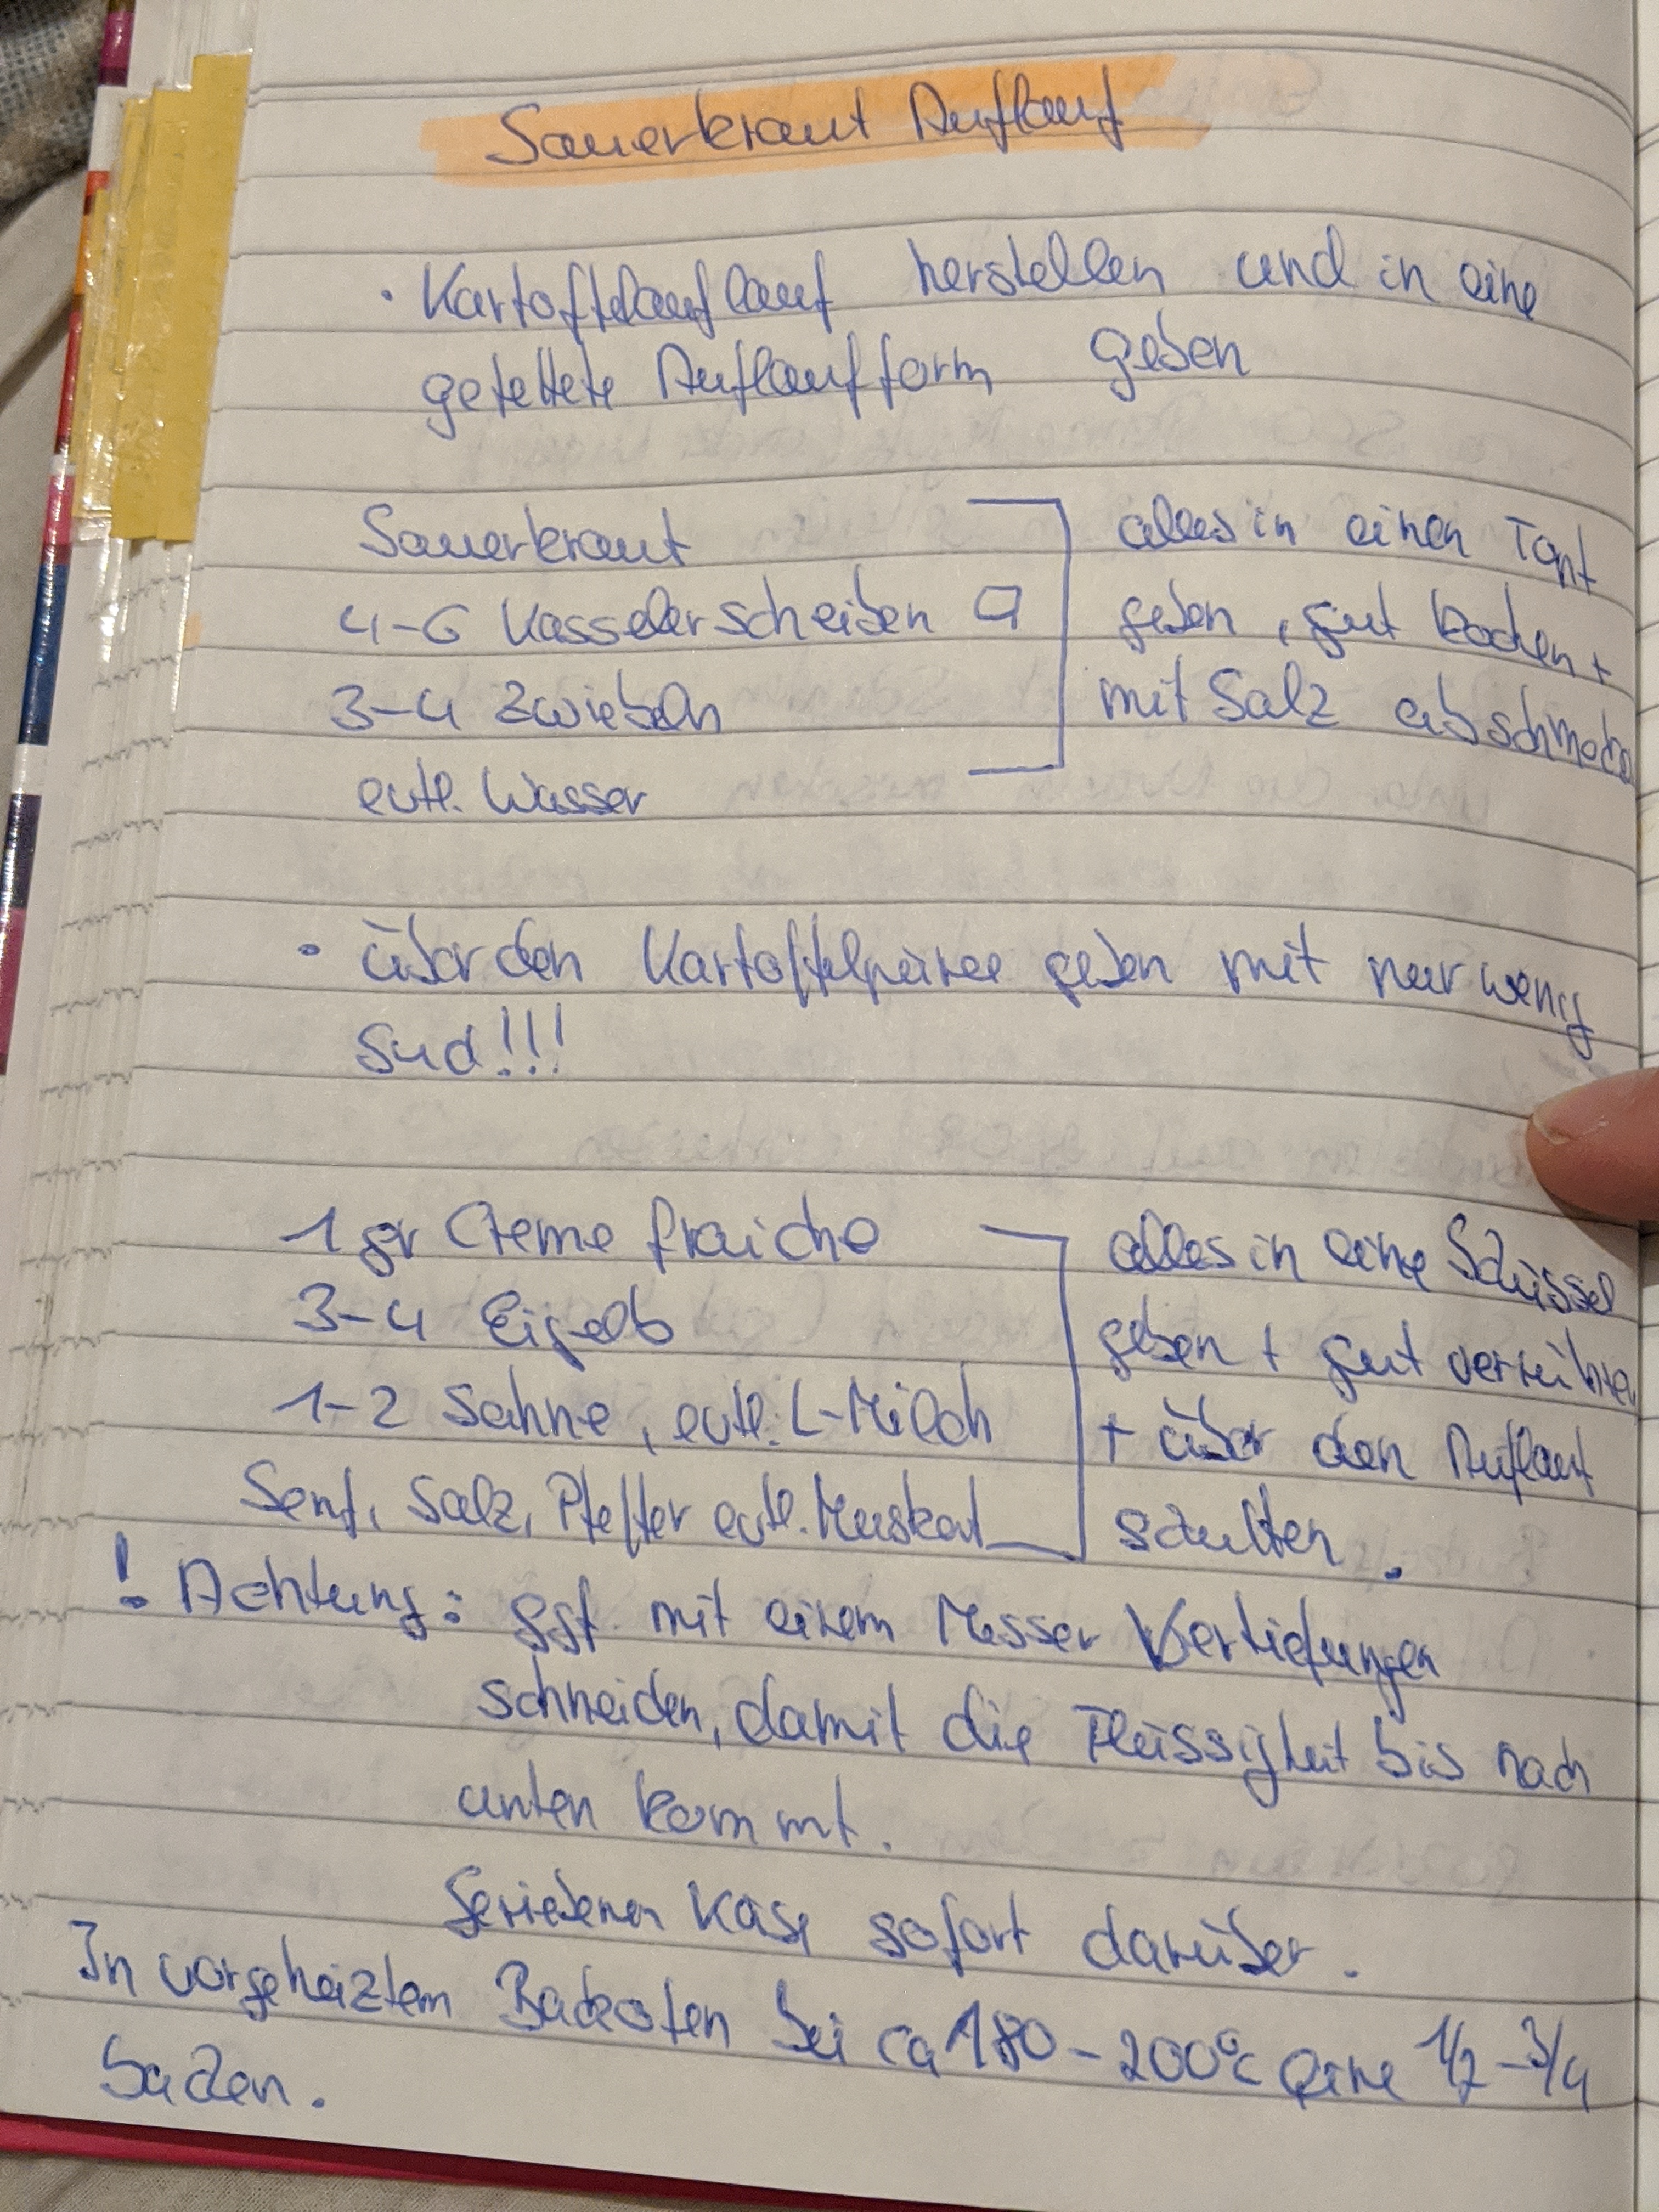 Sauerkraut Auflauf
· Kartoffelauflauf herstellen und in eine
gefettete Auflaufform geben
Sauerkraut
4-6 Kasselerscheiben
3-4 Zwiebeln
evtl. Wasser
alles in einen Topf
geben, gut kochen +
mit Salz abschmecken
· über den Kartoffelpüree geben mit nur wenig
Sud!!!
1 gr Creme fraiche
3-4 Eigelb
1-2 Sahne, evtl. L-Milch
Senf, Salz, Pfeffer evtl. Muskat
alles in eine Schüssel
geben + gut verrühren
+ über den Auflauf
schütten.
! Achtung: ggf. mit einem Messer Vertiefungen
schneiden, damit die Flüssigkeit bis nach
unten kommt.
Geriebenen Käse sofort darüber.
In vorgeheiztem Backofen bei ca 180-200°C eine 1/2-3/4
backen.